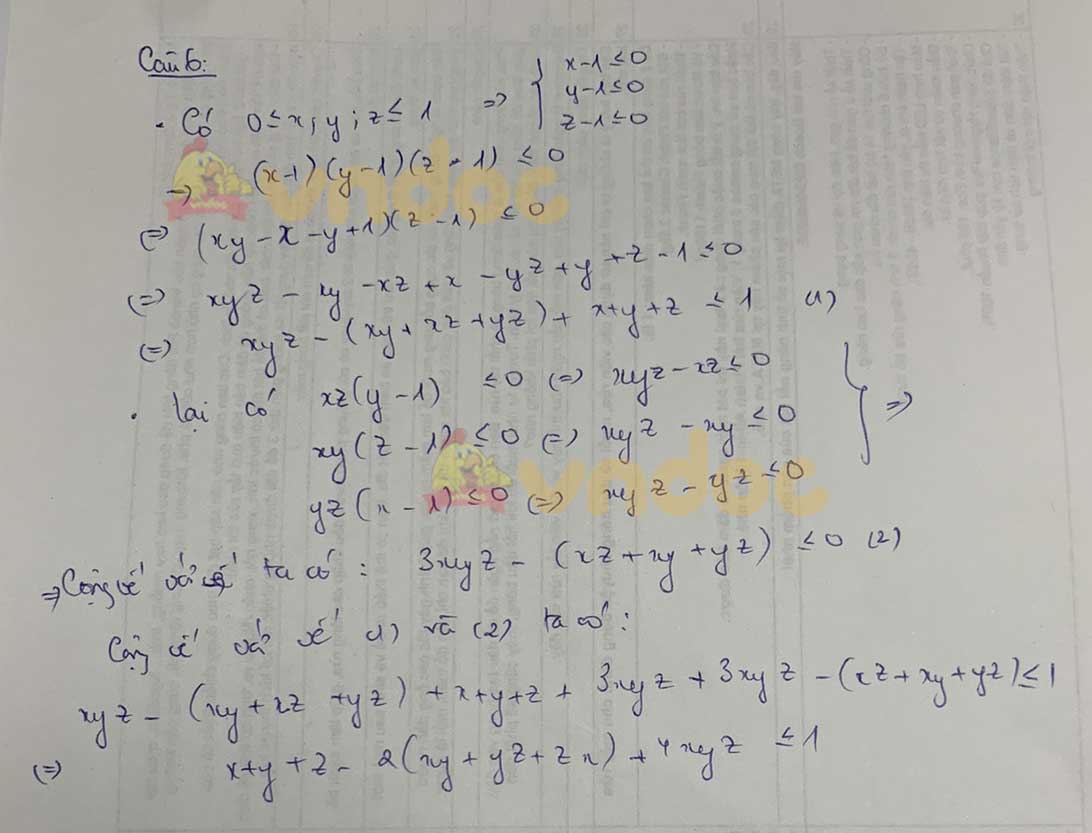 Câu 6:
• Có 0 ≤ x; y; z ≤ 1 => { x-1 ≤ 0
y-1 ≤ 0
z-1 ≤ 0
→ (x-1)(y-1)(z-1) ≤ 0
(=) (xy - x - y + 1)(z - 1) ≤ 0
(=) xyz - xy - xz + x - yz + y + z - 1 ≤ 0
(=) xyz - (xy + xz + yz) + x+y+z ≤ 1 (1)
• lại có xz(y-1) ≤ 0 (=) xyz - xz ≤ 0
xy(z-1) ≤ 0 (=) xyz - xy ≤ 0 } =>
yz(x-1) ≤ 0 (=) xyz - yz ≤ 0
=> Cộng vế với vế ta có: 3xyz - (xz + xy + yz) ≤ 0 (2)
Cộng vế với vế (1) và (2) ta có:
xyz - (xy + xz + yz) + x+y+z + 3xyz + 3xyz - (xz + xy + yz) ≤ 1
(=) x+y+z - 2(xy + yz + zx) + 4xyz ≤ 1
vndoc
vndoc